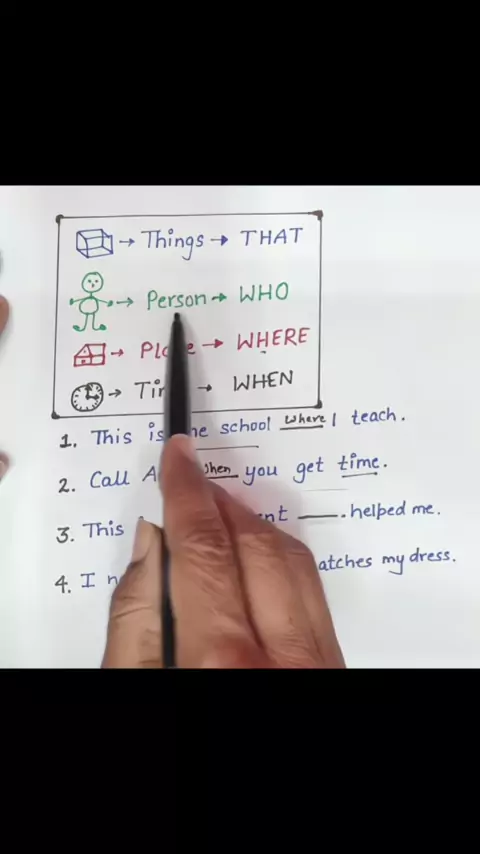 → Things → THAT
→ Person → WHO
→ Pl e → WHERE
→ Ti → WHEN
1. This is he school where I teach.
2. Call A hen you get time.
3. This nt ___. helped me.
4. I n atches my dress.